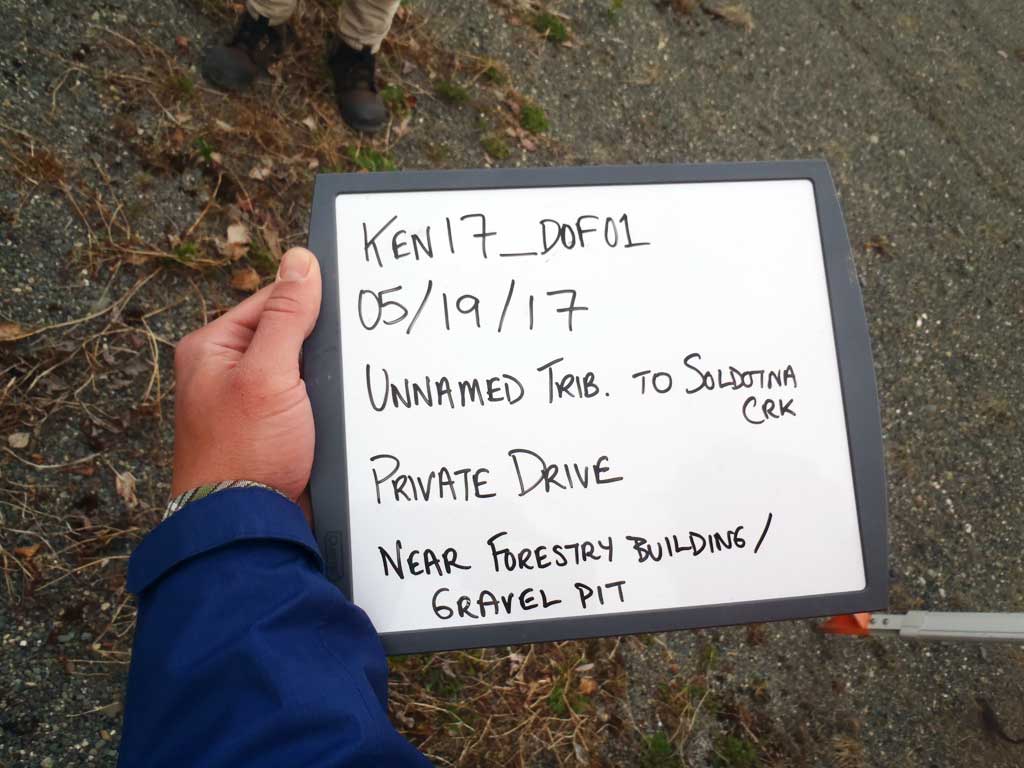 KEN17_DOF01
05/19/17
UNNAMED TRIB. TO SOLDOTNA
CRK
PRIVATE DRIVE
NEAR FORESTRY BUILDING/
GRAVEL PIT